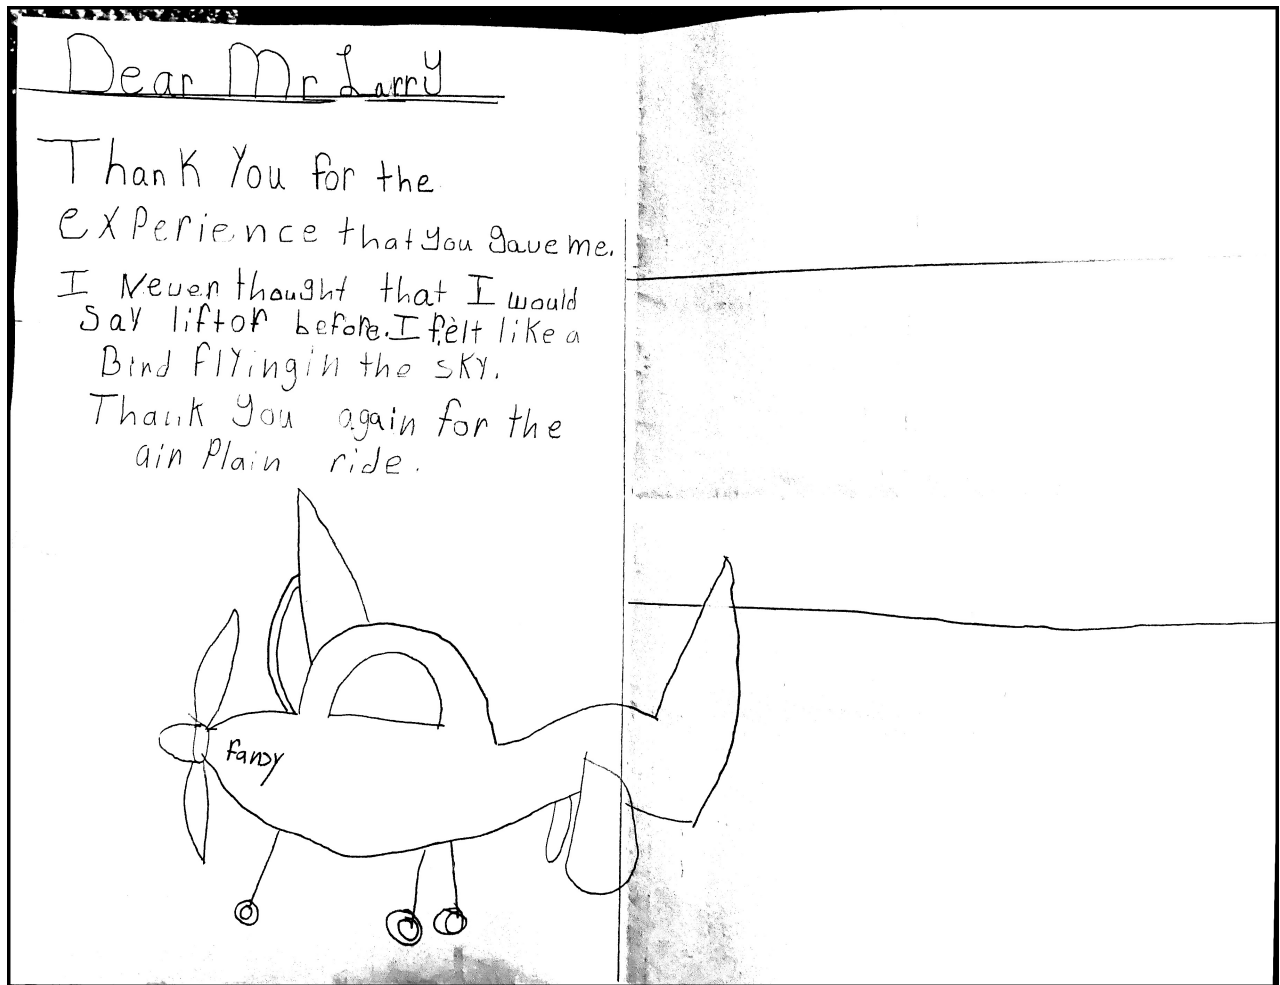 Dear Mr Larry
Thank You for the
experience that you gave me.
I Never thought that I would
Say liftof before. I felt like a
Bird flying in the sky.
Thank you again for the
air Plain ride.